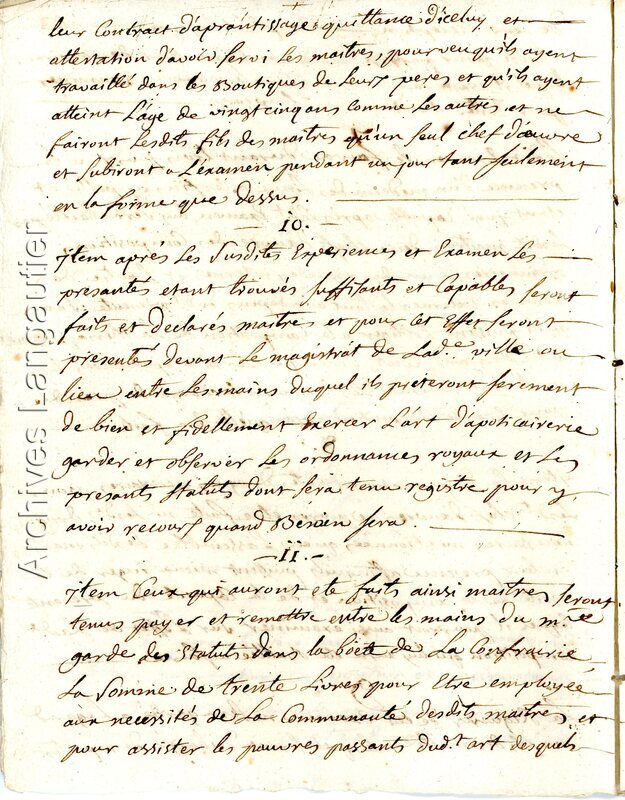 leur Contract d'aprantissage quittance d'iceluy et
attestation d'avoir servi les maitres, pourveu qu'ils ayent
travaillé dans les Boutiques de leurs peres et qu'ils ayent
atteint L'age de vingt cinq ans comme Les autres et ne
fairont Lesdits fils des maitres qu'un seul chef d'œuvre
et subiront a L'examen pendant un jour tant seulement
en la forme que dessus.
10.
jtem aprés Les Susdites Experiences et Examen Les
presantés etant trouvés suffisants et Capables seront
faits et declarés maitres et pour cet Effet seront
presentés devant Le magistrat de Lad.e ville ou
lieu entre Les mains duquel ils préteront serement
de bien et fidellement Exercer L'art d'apoticairerie
garder et observer Les ordonnances royaux et Les
presants statuts dont sera tenu registre pour y
avoir recours quand Besoin sera.
11.
jtem Ceux qui auront eté faits ainsi maitres seront
tenus payer et remettre entre les mains du m.re
garde des statuts dans la boëte de La Confrairie
La somme de trente Livres pour Etre employée
aux necessités de La Communauté desdits maitres et
pour assister les pauvres passants dud.t art desquels
Archives Langautier